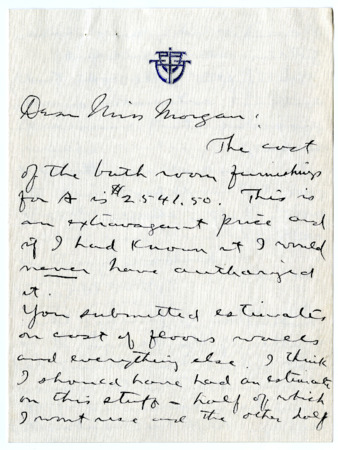 Dear Miss Morgan:
The cost
of the bath room furnishings
for A is $2541.50. This is
an extravagant price and
if I had known it I would
never have authorized
it.
You submitted estimates
on cost of floors walls
and everything else. I think
I should have had an estimate
on this stuff - half of which
I wont use and the other half